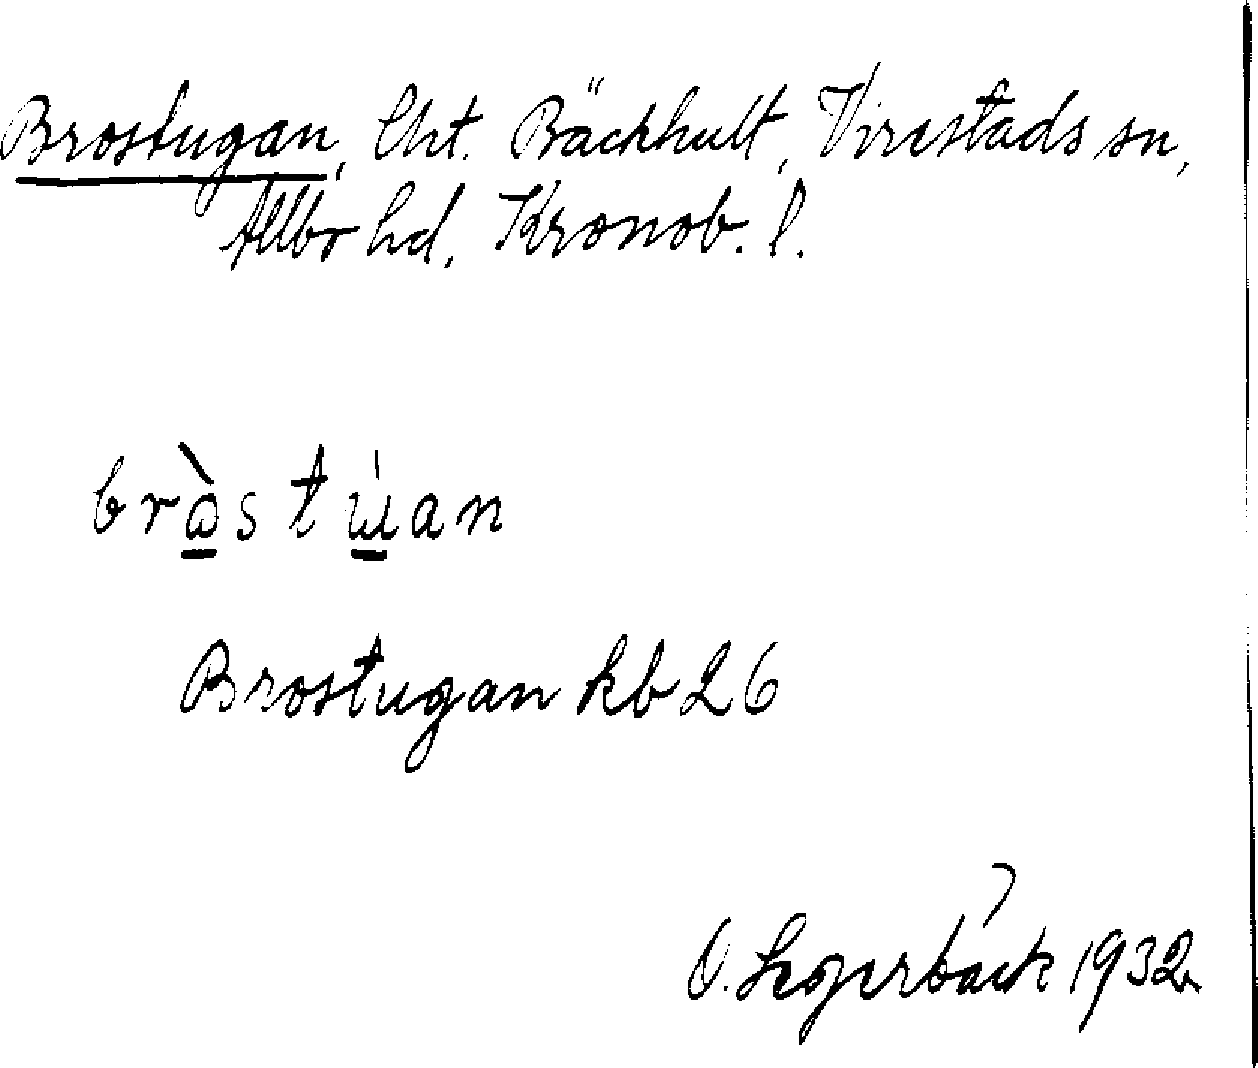 Brostugan, lht. Bäckhult, Virestads sn,
Allbo hd, Kronob. l.
bròstùan
Brostugan kb 26
O. Segerbäck 1932